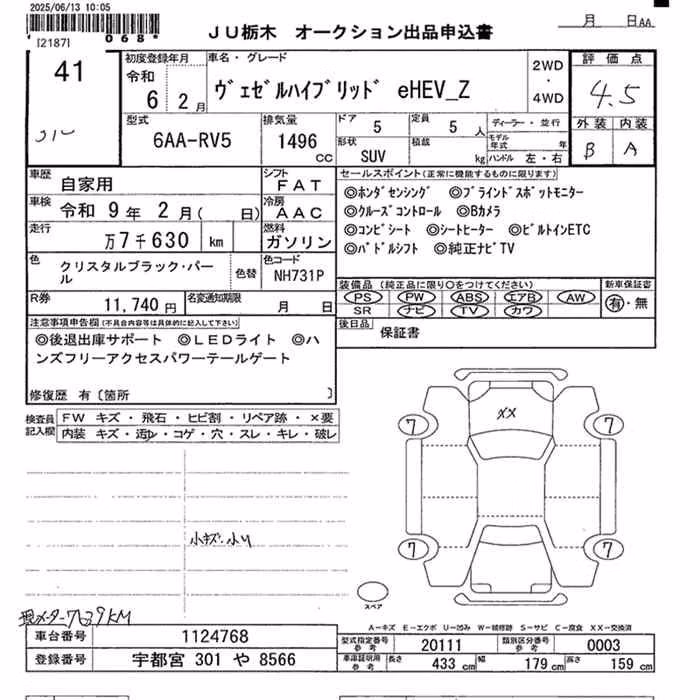 2025/06/13 10:05
[2187] 068*
月 日AA
JU栃木 オークション出品申込書
41
初度登録年月
令和
6 2月
車名・グレード
ヴェゼルハイブリッド eHEV_Z
2WD
・
4WD
評価点
4.5
型式
6AA-RV5
排気量
1496
cc
ドア
5
定員
5 人
ディーラー・並行
形状
SUV
積載
kg
モデル年式 年
ハンドル 左・右
外装 内装
B A
車歴
自家用
シフト
FAT
車検
令和 9年 2月( 日)
冷房
AAC
走行
万7千630 km
燃料
ガソリン
色
クリスタルブラック・パール
色替
色コード
NH731P
R券
11,740 円
名変通知期限
月 日
セールスポイント(正常に機能するものに限ります)
◎ホンダセンシング ◎ブラインドスポットモニター
◎クルーズコントロール ◎Bカメラ
◎コンビシート ◎シートヒーター ◎ビルトインETC
◎パドルシフト ◎純正ナビTV
装備品 (純正品に限り○をつけてください)
PS PW ABS エアB AW
SR ナビ TV カワ
新車保証書
有・無
後日品
保証書
注意事項申告欄(不具合内容等は具体的に記入して下さい)
◎後退出庫サポート ◎LEDライト ◎ハ
ンズフリーアクセスパワーテールゲート
修復歴 有〔箇所 〕
検査員記入欄
FW キズ・飛石・ヒビ割・リペア跡・×要
内装 キズ・汚レ・コゲ・穴・スレ・キレ・破レ
XX
7 7
7 7
小キズ・小U
スペア
現メーター7639KM
A−キズ E−エクボ U−凹み W−補修跡 S−サビ C−腐食 XX−交換済
車台番号
1124768
登録番号
宇都宮 301 や 8566
型式指定番号
参考
20111
類別区分番号
参考
0003
車庫証明用
参考
長さ
433 cm
幅
179 cm
高さ
159 cm